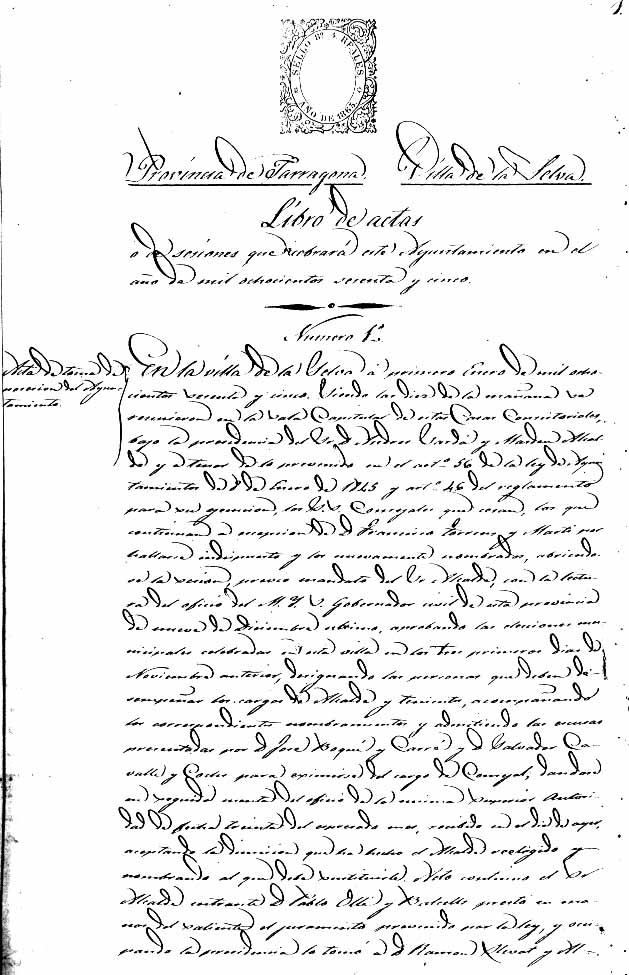 1.
SELLO 8º 4 REALES
AÑO DE 1865
Provincia de Tarragona. Villa de la Selva.
Libro de actas
o de sesiones que celebrará este Ayuntamiento en el
año de mil ochocientos sesenta y cinco.
Numero 1º
Acta de toma de
posesion del Ayun-
tamiento.
En la villa de la Selva á primero Enero de mil ocho-
cientos sesenta y cinco. Siendo las diez de la mañana se
reunieron en la sala Capitular de estas Casas Consistoriales,
bajo la presidencia del Sr. D. Andres y Alcal-
de y á tenor de lo prevenido en el artº 56 de la ley de Ayun-
tamientos de 8 de Enero de 1845 y artº 46 del reglamento
para su ejecucion, los S.S. Concejales que cesan, los que
continuan á escepcion de D. Francisco y Martí por
hallarse indispuesto y los nuevamente nombrados, abriendo-
se la sesion, previo mandato del Sr. Alcalde, con la lectu-
ra del oficio del M. Y. S. Gobernador civil de esta provincia
de nueve de Diciembre ultimo, aprobando las elecciones mu-
nicipales celebradas en esta villa en los tres primeros dias de
Noviembre anterior, designando las personas que deben de-
sempeñar los cargos de Alcalde y teniente, acompañando
los correspondientes nombramientos y admitiendo las escusas
presentadas por D. José y y D. Salvador Ca-
valle y para eximirse del cargo de Concejal, dandose
en seguida cuenta del oficio de la misma superior Autori-
dad de fecha treinta del espresado mes, recibido en el dia de ayer,
aceptando la dimision que ha hecho el Alcalde reelegido y
nombrando al que debe sustituirle. Acto continuo el Sr.
Alcalde entrante D. Pablo Ollé y prestó en ma-
nos del saliente el juramento prevenido por la ley, y ocu-
pando la presidencia lo tomó á D. Ramon y